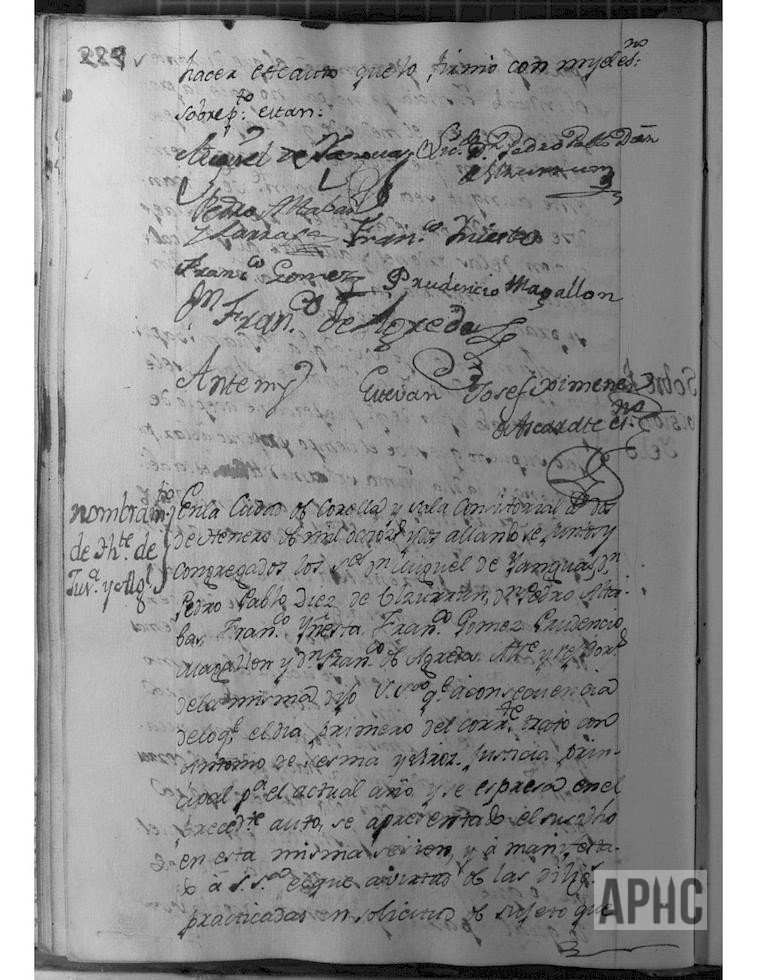 229
hacer este auto que lo firmó con my el es.no
sobre p.to estan:
Miguel de Yanguas Lic.do D.n Pedro Pablo Diez
de Ulzurrun
Pedro Attaban
y Larraga Fran.co Yniesta
Fran.co Gomez Prudencio Magallon
D.n Fran.co de Agreda
Antemy Estevan Josef Ximenez
de Ascarate es.no
nombram.to
de Th.te de
Jur.a y Alg.l
En la Ciudad de Corella y sala Consistorial a dos
de Henero de mil ochoz.s y dos allandose juntos y
Congregados los S.res d.n Miguel de Yanguas, d.n
Pedro Pablo Diez de Ulzurrun, d.n Pedro Atta-
bas, Fran.co Yniesta, Fran.co Gomez, Prudencio
Magallon y d.n Fran.co de Agreda, Al.e y reg.dores
de la misma dijo q.e a consequencia
delo q.e el dia primero del corr.te trato con
Antonio de Lesma Justicia prin-
cipal p.a el actual año, y se espresa en el
preced.te auto, se apresentado el suso dho
en esta misma sesion, y á manifesta-
do á S.S.as que a virtud de las dilig.s
practicadas en solicitud de sujeto que
APHC